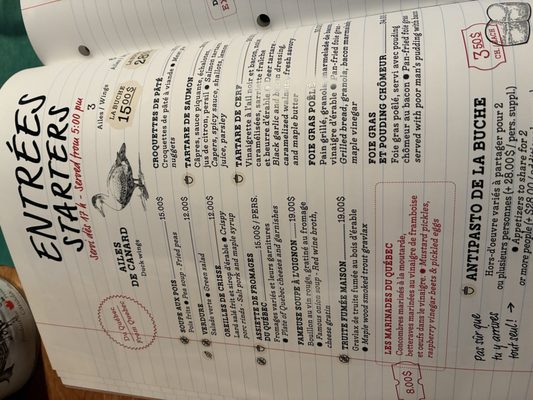 ENTRÉES
STARTERS
Servi dès 17 h - Served from 5:00 pm
AILES
DE CANARD
Duck wings
3
Ailes / Wings
LA BUCHE
15.00$
Du Québec
From Québec
SOUPE AUX POIS 12.00$
Pois frits ● Pea soup - Fried peas
VERDURE 12.00$
Salade verte ● Green salad
OREILLES DE CRISSE
Lard salé frit et sirop d'érable ● Crispy
porc rinds - Salt pork and maple syrup
ASSIETTE DE FROMAGES 15.00$ / PERS.
DU QUÉBEC
Fromages variés et leurs garnitures
● Plate of Quebec cheeses and garnishes
FAMEUSE SOUPE À L'OIGNON 19.00$
Bouillon au vin rouge, gratiné au fromage
● Famous onion soup - Red wine broth,
cheese gratin
TRUITE FUMÉE MAISON 19.00$
Gravlax de truite fumée au bois d'érable
● Maple wood smoked trout gravlax
LES MARINADES DU QUÉBEC
Concombres marinés à la moutarde,
betteraves marinées au vinaigre de framboise
et oeufs dans le vinaigre. ● Mustard pickles,
raspberry vinegar beets & pickled eggs
8.00$
CROQUETTES DE PÂTÉ
Croquettes de pâté à viande ●
nuggets
TARTARE DE SAUMON
Câpres, sauce piquante, échalotes,
jus de citron, persil ● Salmon
Capers, spicy sauce, shallots, lemon
juice, parsley
TARTARE DE CERF
Vinaigrette à l'ail noir et bacon,
caramélisées, sarriette fraîche
et beurre d'érable ● Deer tartare,
Black garlic and bacon dressing,
caramelized walnuts, fresh savory,
and maple butter
FOIE GRAS POÊLÉ
Pain grillé, granola, marmelade de bacon,
vinaigre d'érable ● Pan-fried foie gras
Grilled bread, granola, bacon marmalade,
maple vinegar
FOIE GRAS
ET POUDING CHÔMEUR
Foie gras poêlé, servi avec pouding
chômeur au bacon ● Pan-fried foie gras
served with poor man's pudding with bacon
3.50$
CH. / EACH
ANTIPASTO DE LA BUCHE
Hors-d'oeuvre variés à partager pour 2
ou plusieurs personnes (+ 28.00$ / pers. suppl.)
● Appetizers to share for 2
or more people
Pas sûr que
tu y arrives
tout seul! →